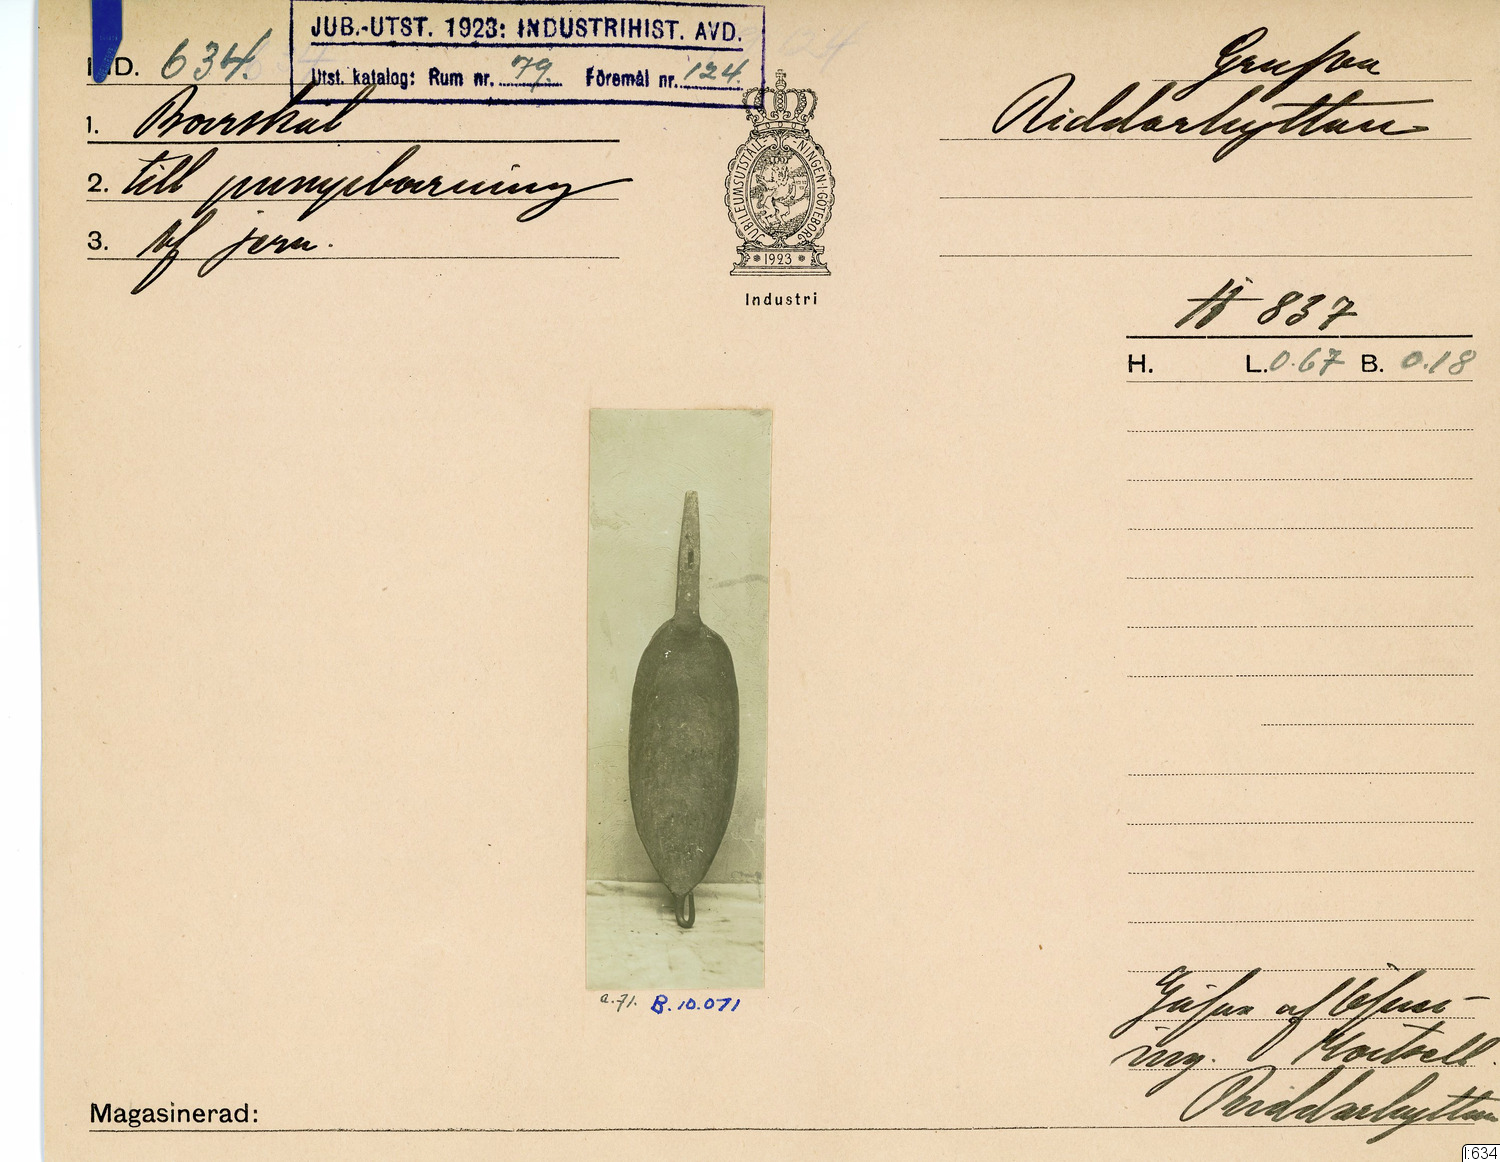 JUB.-UTST. 1923: INDUSTRIHIST. AVD.
Utst. katalog: Rum nr. 79. Föremål nr. 124.
IND. 634.
1. Borrskål
2. till pumpborrning
3. af jern.
Grufva
Riddarhyttan
JUBILEUMSUTSTÄLLNINGEN I GÖTEBORG
* 1923 *
Industri
# 837
H. L. 0.67 B. 0.18
a.71. B.10.071
Gåfva af
ing.
Riddarhyttan
Magasinerad:
I:634